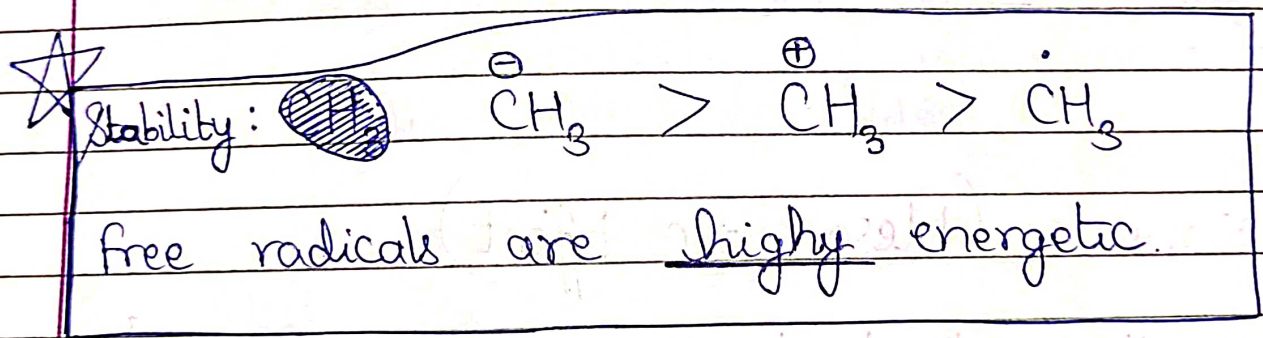 Stability : ⊖CH₃ > ⊕CH₃ > ĊH₃
free radicals are highy energetic.